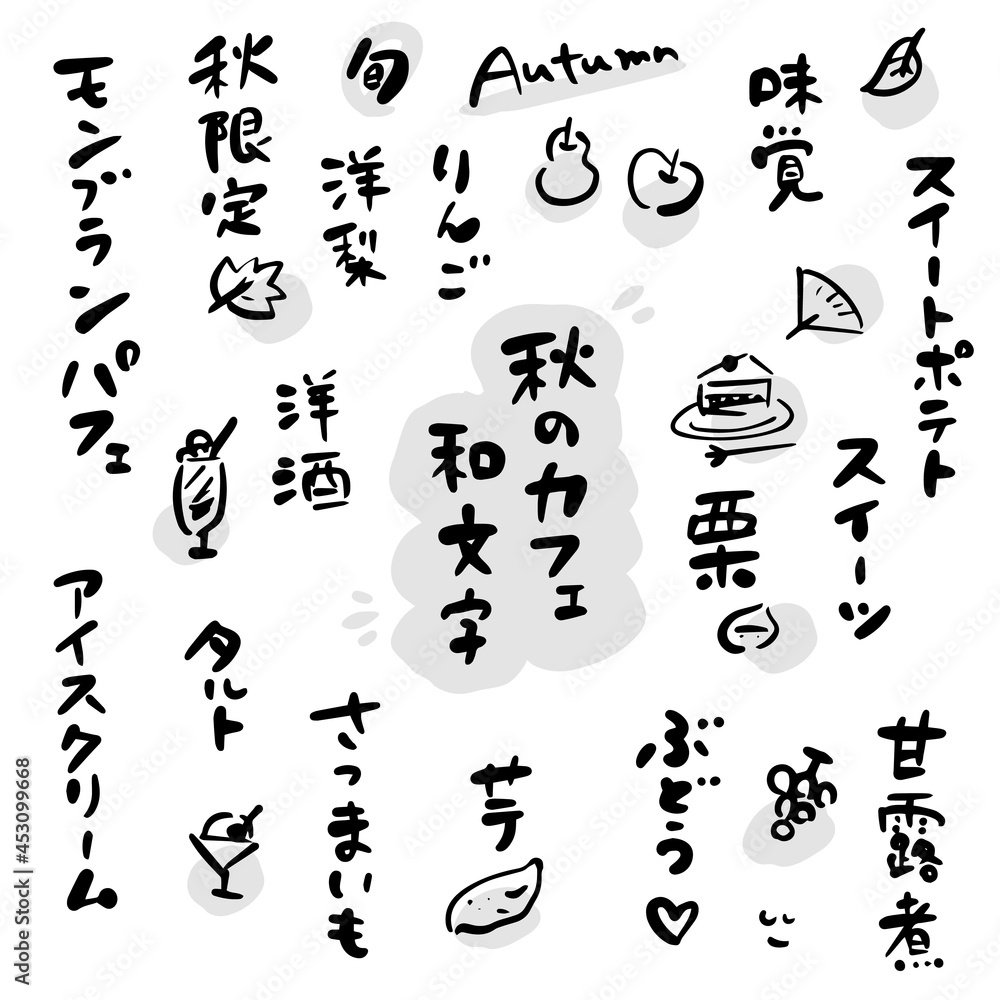 モンブランパフェ
秋限定
旬
Autumn
味覚
スイートポテト
洋梨
りんご
秋のカフェ
和文字
洋酒
栗
スイーツ
アイスクリーム
タルト
さつまいも
芋
ぶどう♡
甘露煮
Adobe Stock | #453099668